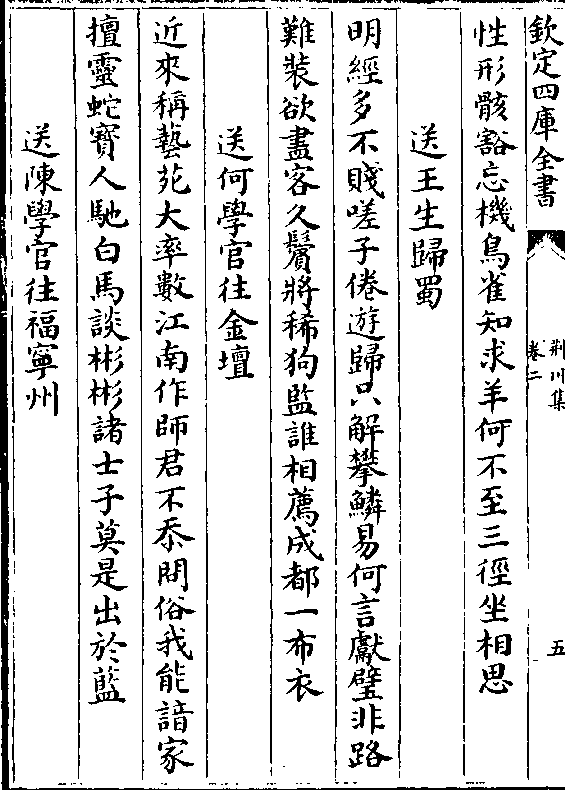 欽定四庫全書
荆川集
卷二
五
性形骸豁忘機鳥雀知求羊何不至三徑坐相思
送王生歸蜀
明經多不賤嗟子倦遊歸只解攀鱗易何言獻璧非路
難裝欲盡客久鬢將稀狗監誰相薦成都一布衣
送何學官往金壇
近來稱藝苑大率數江南作師君不忝問俗我能諳家
擅靈蛇寶人馳白馬談彬彬諸士子莫是出於藍
送陳學官往福寧州